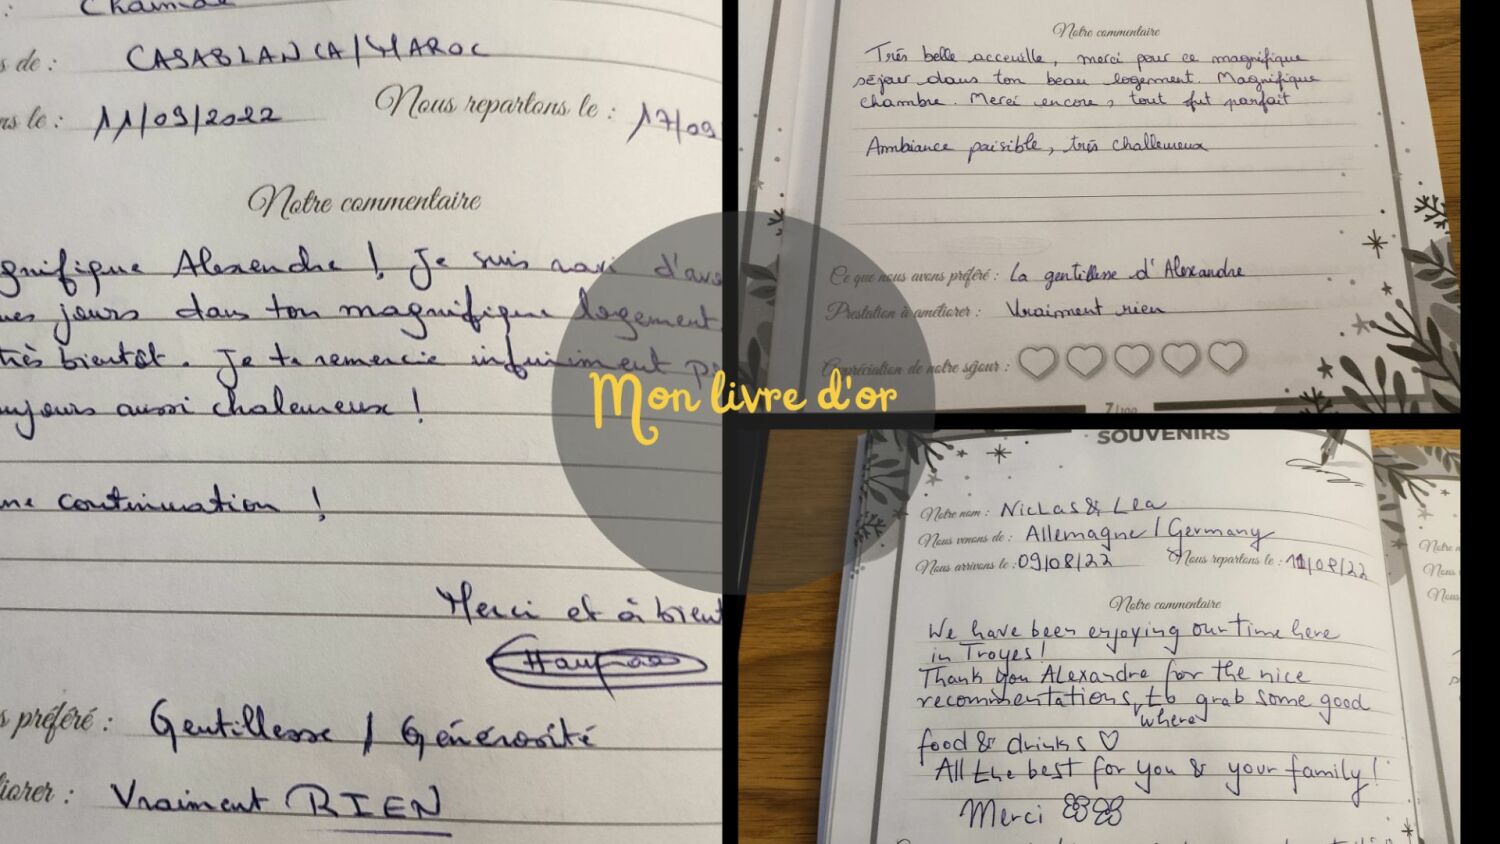 CASABLANCA/MAROC
s de :
11/09/2022
Nous repartons le : 17/09
Notre commentaire
gnifique Alexandre ! Je suis ravi d'avo
ues jours dans ton magnifique logement
très bientôt. Je te remercie infiniment p
ujours aussi chaleureux !
ne continuation !
Merci et à bient
s préféré : Gentillesse / Générosité
iorer : Vraiment RIEN
Mon livre d'or
Notre commentaire
Très belle acceuille, merci pour ce magnifique
séjour dans ton beau logement. Magnifique
chambre. Merci encore, tout fut parfait
Ambiance paisible, très challeureux
Ce que nous avons préféré : La gentillesse d'Alexandre
Prestation à améliorer : Vraiment rien
Appréciation de notre séjour :
7/100
SOUVENIRS
Notre nom : Niclas & Lea
Nous venons de : Allemagne / Germany
Nous arrivons le : 09/08/22 Nous repartons le : 11/08/22
Notre commentaire
We have been enjoying our time here
in Troyes!
Thank you Alexandre for the nice
recommentations, where to grab some good
food & drinks ♡
All the best for you & your family!
Merci